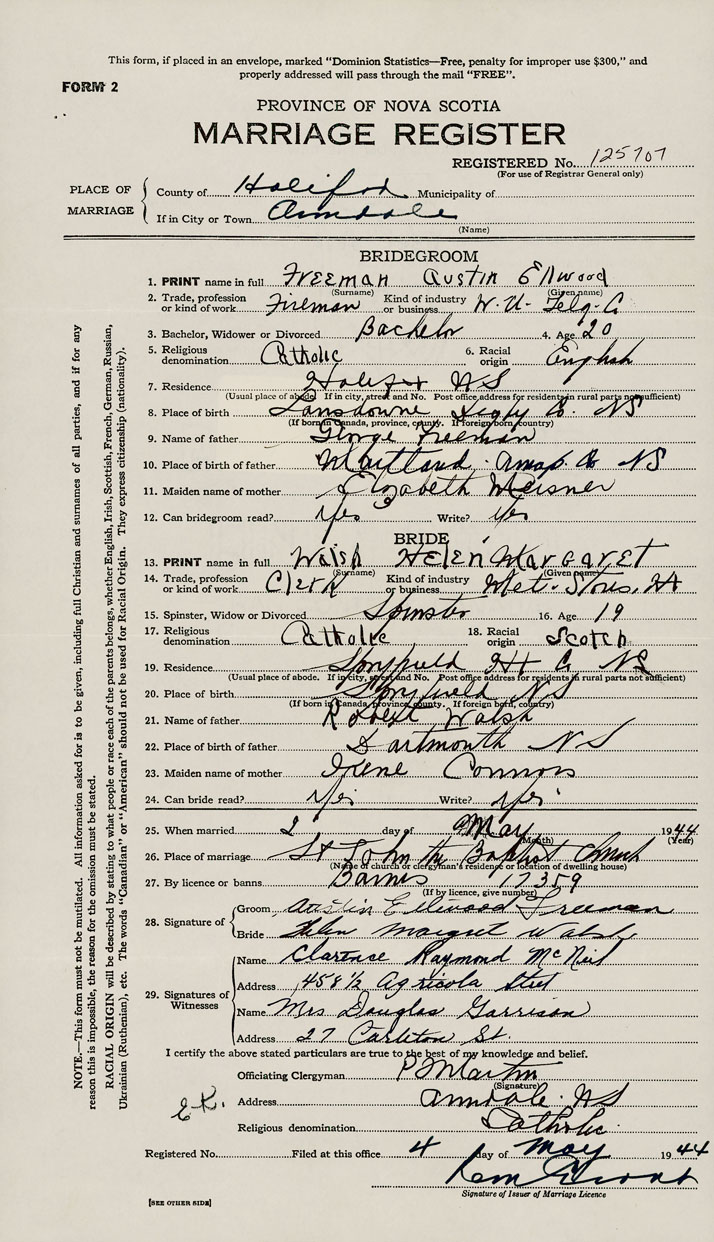 This form, if placed in an envelope, marked "Dominion Statistics—Free, penalty for improper use $300," and
properly addressed will pass through the mail "FREE".
FORM 2
PROVINCE OF NOVA SCOTIA
MARRIAGE REGISTER
REGISTERED No. 125707
(For use of Registrar General only)
PLACE OF MARRIAGE
County of Halifax Municipality of
If in City or Town Armdale
(Name)
BRIDEGROOM
1. PRINT name in full Freeman Austin Ellwood
(Surname) (Given name)
2. Trade, profession or kind of work Fireman Kind of industry or business W. U. Telg. C
3. Bachelor, Widower or Divorced Bachelor 4. Age 20
5. Religious denomination Catholic 6. Racial origin English
7. Residence Halifax NS
(Usual place of abode. If in city, street and No. Post office address for residents in rural parts not sufficient)
8. Place of birth Lansdowne Digby Co. NS
(If born in Canada, province, county. If foreign born, country)
9. Name of father George Freeman
10. Place of birth of father Maitland Anap. Co NS
11. Maiden name of mother Elizabeth Meisner
12. Can bridegroom read? yes Write? yes
BRIDE
13. PRINT name in full Walsh Helen Margaret
(Surname) (Given name)
14. Trade, profession or kind of work Clerk Kind of industry or business Met. Stores,
15. Spinster, Widow or Divorced Spinster 16. Age 19
17. Religious denomination Catholic 18. Racial origin Scotch
19. Residence Spryfield Hx C. NS
(Usual place of abode. If in city, street and No. Post office address for residents in rural parts not sufficient)
20. Place of birth Spryfield NS
(If born in Canada, province, county. If foreign born, country)
21. Name of father Robert Walsh
22. Place of birth of father Dartmouth NS
23. Maiden name of mother Irene Connors
24. Can bride read? yes Write? yes
25. When married 2 day of May 1944
(Month) (Year)
26. Place of marriage St John the Baptist Church
(Name of church or clergyman's residence or location of dwelling house)
27. By licence or banns Banns 17359
(If by licence, give number)
28. Signature of
Groom Austin Ellwood Freeman
Bride Helen Margret Walsh
29. Signatures of Witnesses
Name Clarence Raymond McNeil
Address 458½ Agricola Street
Name Mrs Douglas Garrison
Address 27 Carleton St.
I certify the above stated particulars are true to the best of my knowledge and belief.
Officiating Clergyman P Martin
(Signature)
Address Armdale NS
Religious denomination Catholic
E.K.
Registered No. Filed at this office 4 day of May 1944
Signature of Issuer of Marriage Licence
[SEE OTHER SIDE]
NOTE.—This form must not be mutilated. All information asked for is to be given, including full Christian and surnames of all parties, and if for any
reason this is impossible, the reason for the omission must be stated.
RACIAL ORIGIN will be described by stating to what people or race each of the parents belongs, whether English, Irish, Scottish, French, German, Russian,
Ukrainian (Ruthenian), etc. The words "Canadian" or "American" should not be used for Racial Origin. They express citizenship (nationality).